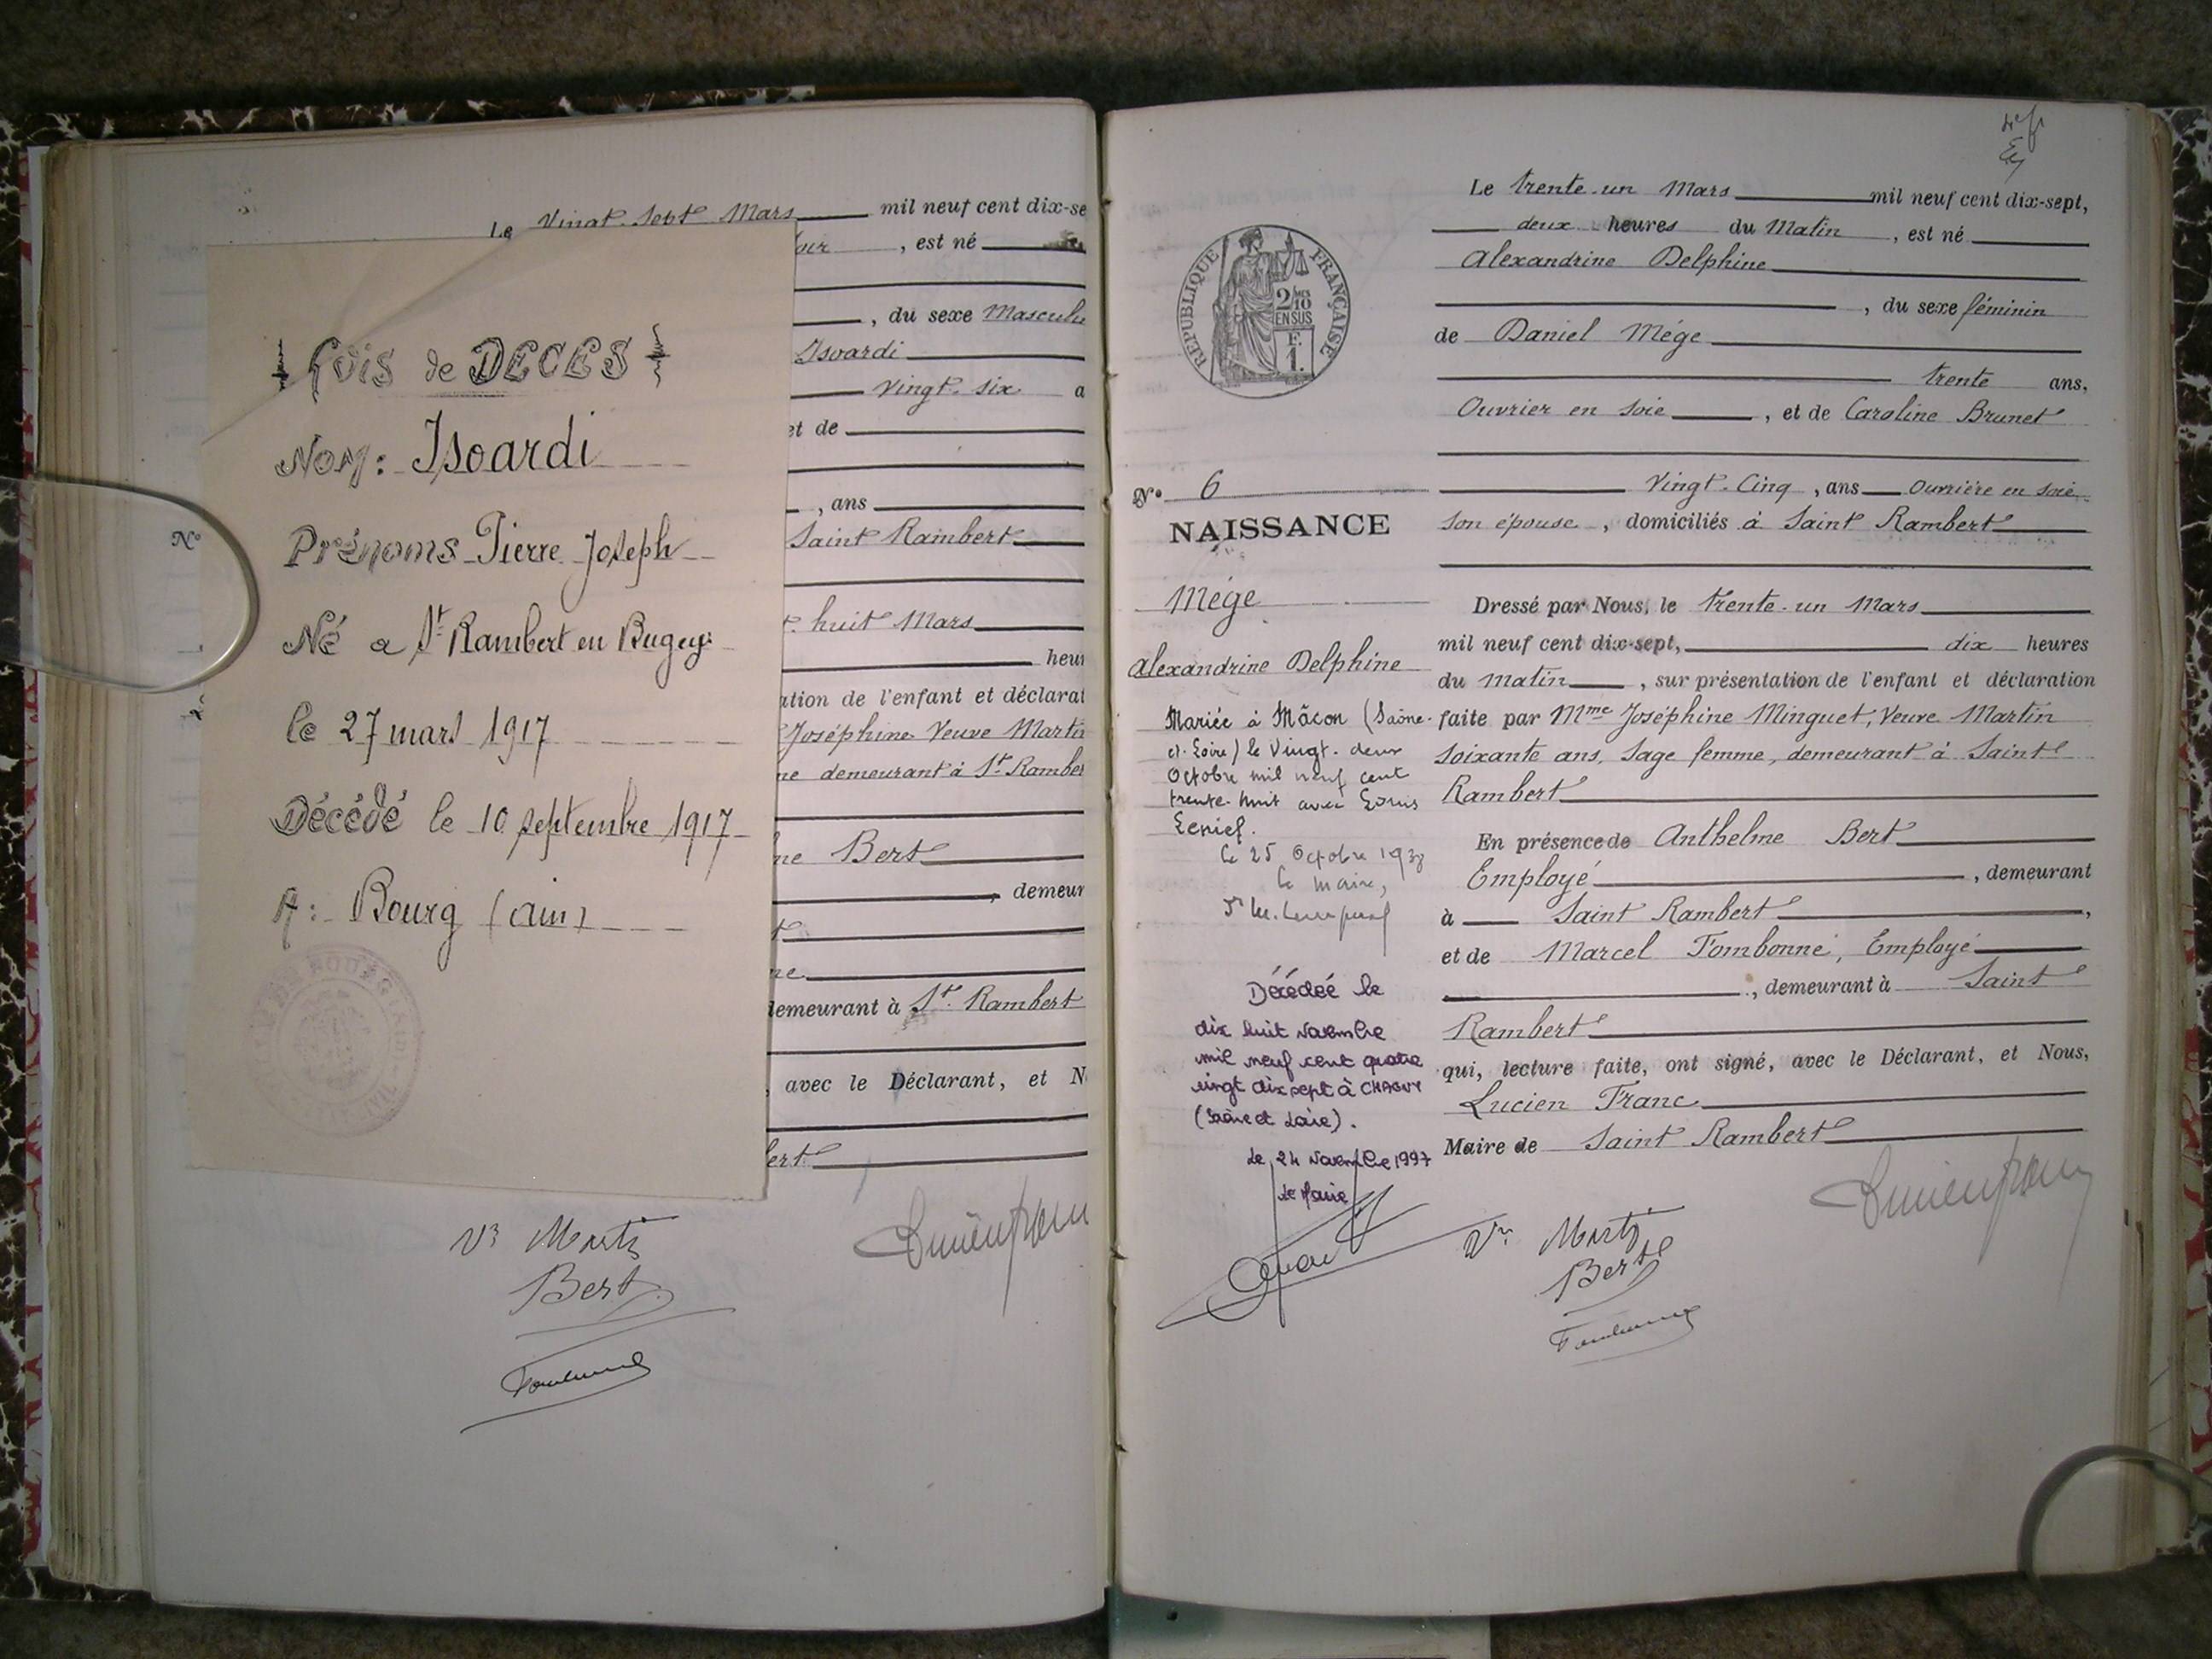 Le Vingt-Sept Mars mil neuf cent dix-se
oir, est né
, du sexe Masculi
Isoardi
Vingt-six a
et de
, ans
Saint Rambert
N°
t-huit Mars
heur
ation de l'enfant et déclarat
Joséphine Veuve Martin
me demeurant à St Ramber
ne Bert
, demeur
t
ne
demeurant à St Rambert
, avec le Déclarant, et N
bert
Avis de DECES
NOM: Isoardi
Prénoms Pierre Joseph
Né a St Rambert en Bugey
le 27 mars 1917
Décédé le 10 septembre 1917
A: Bourg (ain)
Vve Martin
Bert
Le trente-un Mars mil neuf cent dix-sept,
deux heures du Matin, est né
Alexandrine Delphine
, du sexe féminin
de Daniel Mége
trente ans,
Ouvrier en soie, et de Caroline Brunet
Vingt-Cinq, ans Ouvrière en soie
son épouse, domiciliés à Saint Rambert
Dressé par Nous, le trente-un Mars
mil neuf cent dix-sept, dix heures
du matin, sur présentation de l'enfant et déclaration
faite par Mme Joséphine Minguet, Veuve Martin
soixante ans, Sage femme, demeurant à Saint
Rambert
En présence de Anthelme Bert
Employé, demeurant
à Saint Rambert,
et de Marcel Tombonne, Employé
, demeurant à Saint
Rambert
qui, lecture faite, ont signé, avec le Déclarant, et Nous,
Lucien Franc
Maire de Saint Rambert
RÉPUBLIQUE FRANÇAISE
2/10MES
EN SUS
F.
1.
N° 6
NAISSANCE
Mége
Alexandrine Delphine
Mariée à Mâcon (Saône-
et-Loire) le Vingt-deux
Octobre mil neuf cent
trente-huit avec Louis
Le 25 Octobre 1938
Le Maire,
Décédée le
dix huit novembre
mil neuf cent quatre
vingt dix sept à CHAGNY
(Saône et Loire).
Le 24 novembre 1997
Le Maire
Vve Martin
Bert